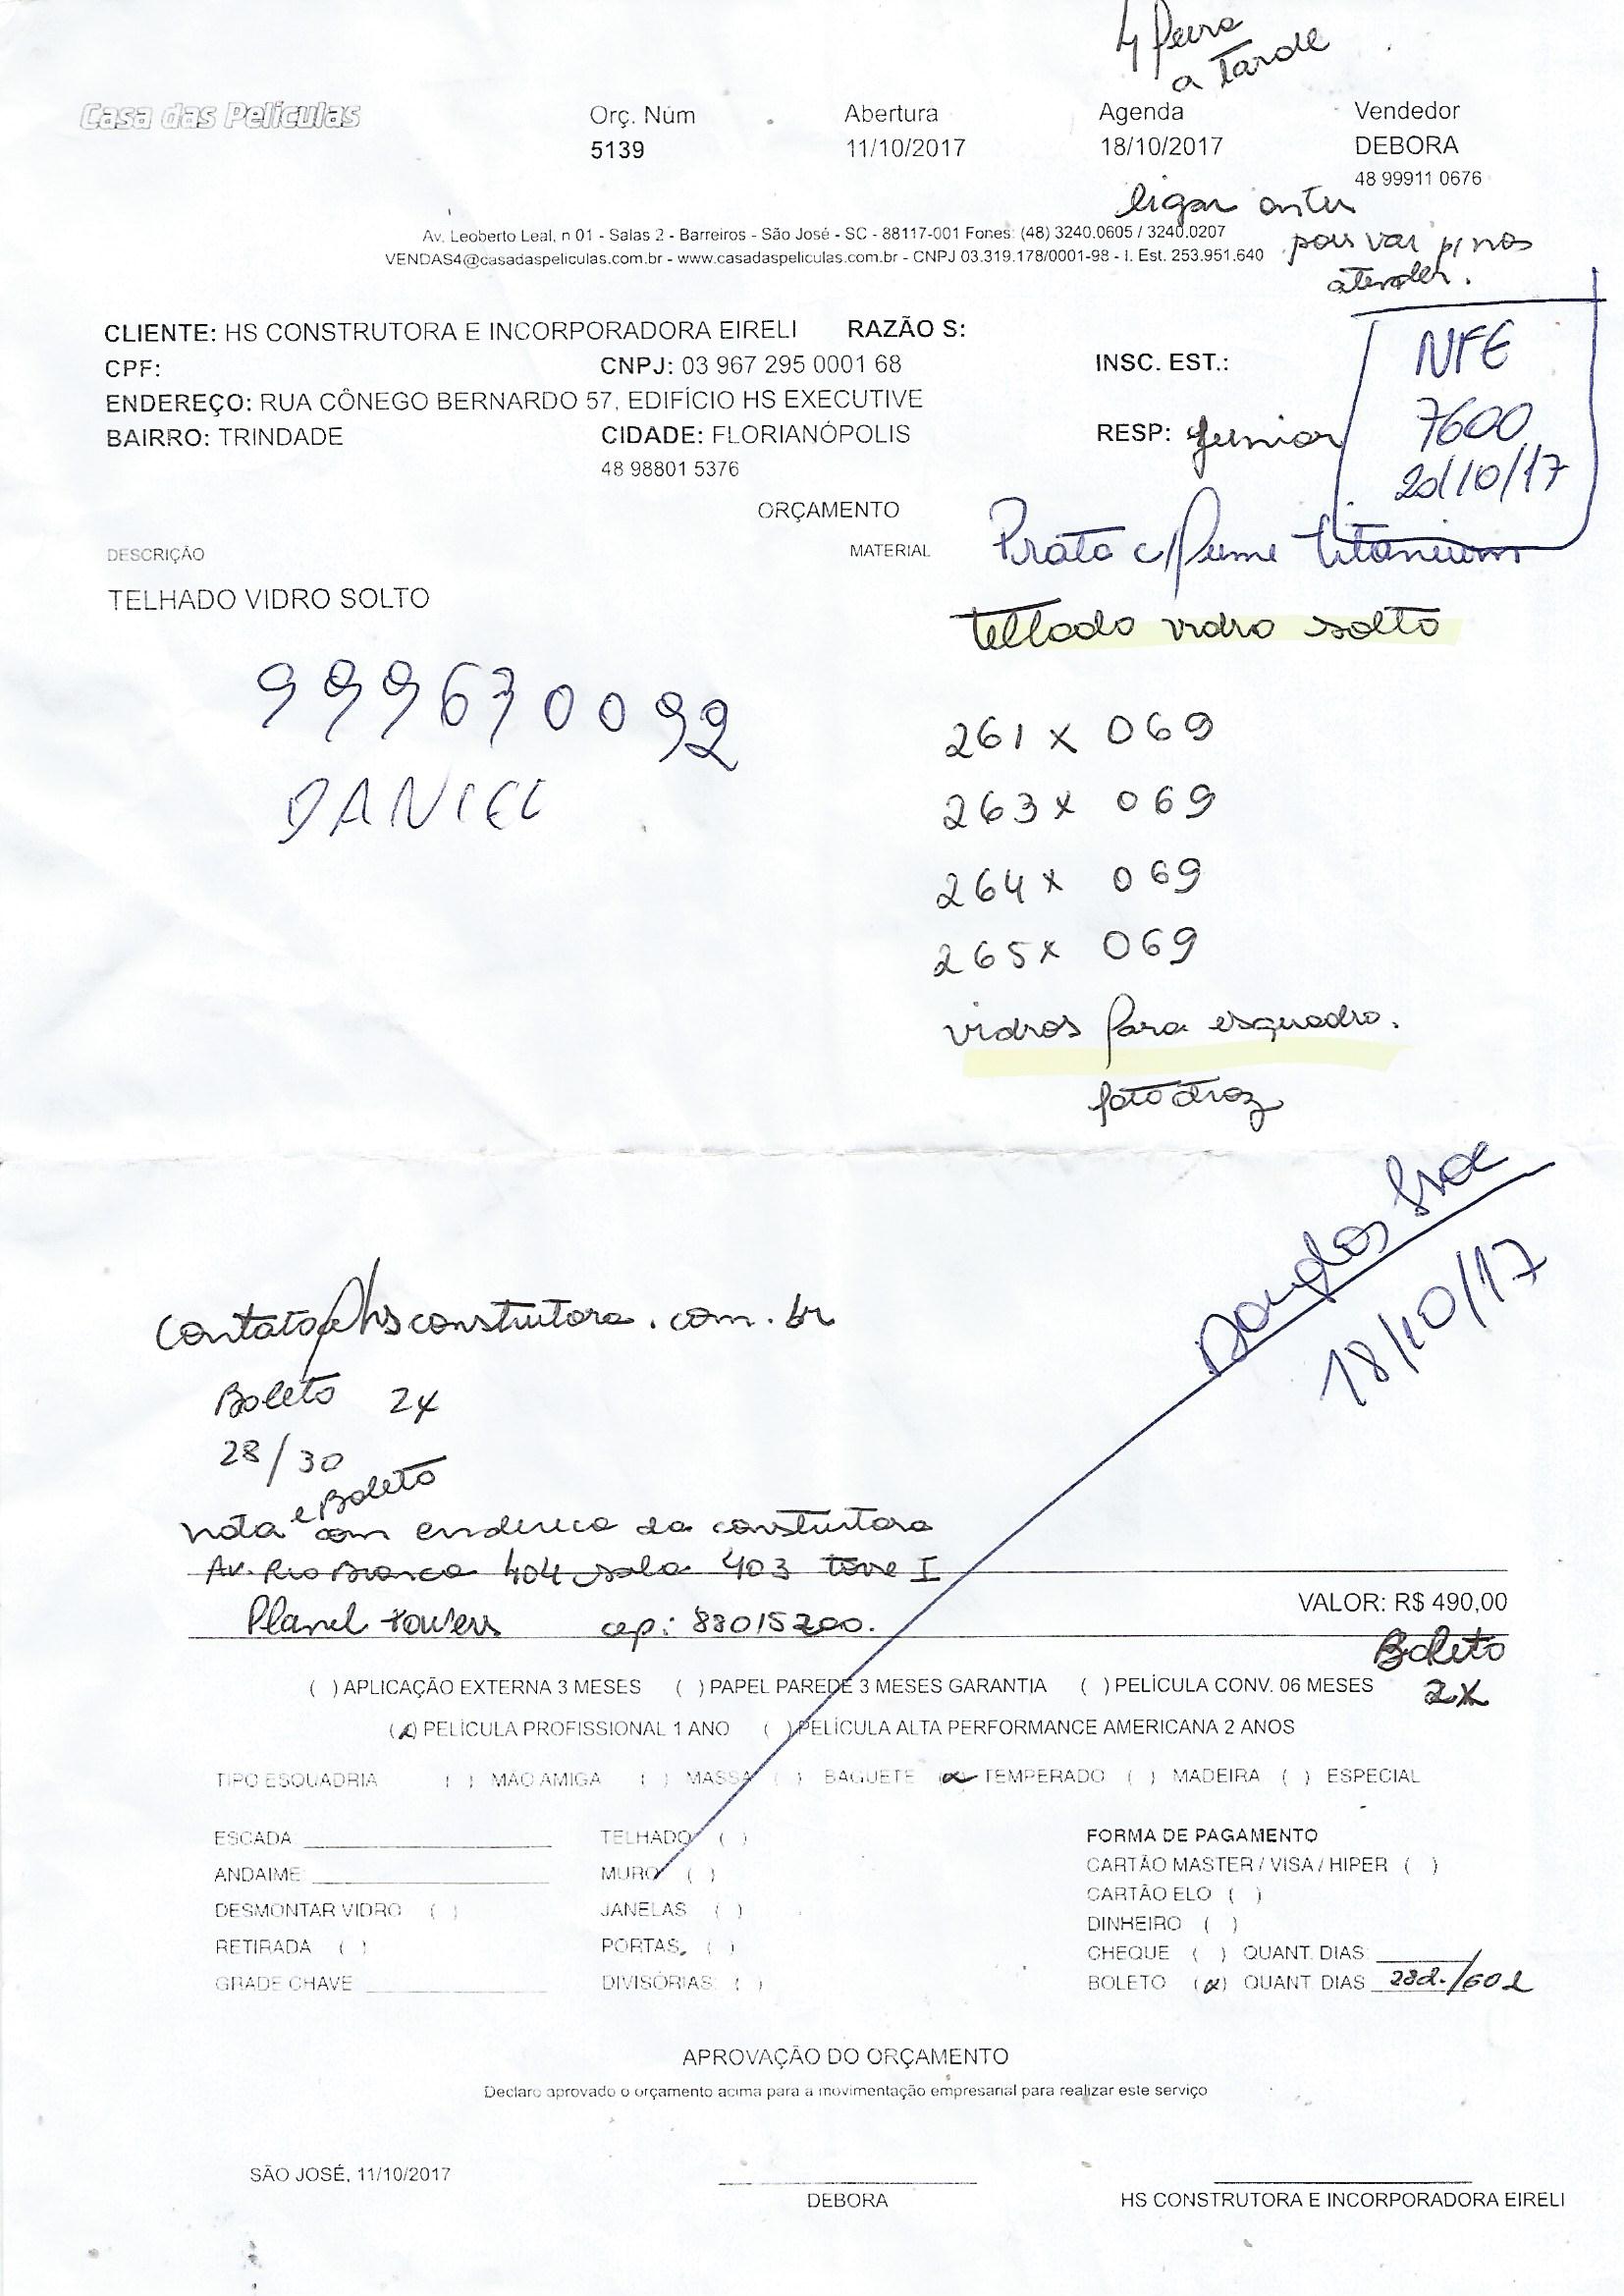 4 feira
a tarde
Casa das Películas
Orç. Núm Abertura Agenda Vendedor
5139 11/10/2017 18/10/2017 DEBORA
48 99911 0676
ligar antes
Av. Leoberto Leal, n 01 - Salas 2 - Barreiros - São José - SC - 88117-001 Fones: (48) 3240.0605 / 3240.0207
pois vai p/ nos
VENDAS4@casadaspeliculas.com.br - www.casadaspeliculas.com.br - CNPJ 03.319.178/0001-98 - I. Est. 253.951.640
atender.
CLIENTE: HS CONSTRUTORA E INCORPORADORA EIRELI RAZÃO S:
NFE
CPF: CNPJ: 03 967 295 0001 68 INSC. EST.:
ENDEREÇO: RUA CÔNEGO BERNARDO 57, EDIFÍCIO HS EXECUTIVE
7600
BAIRRO: TRINDADE CIDADE: FLORIANÓPOLIS RESP: Junior
48 98801 5376
20/10/17
ORÇAMENTO
DESCRIÇÃO MATERIAL Prata c/ fume titanium
TELHADO VIDRO SOLTO
telhado vidro solto
999670092
261 x 069
DANIEL
263 x 069
264 x 069
265 x 069
vidros fora esquadro.
foto
Douglas
18/10/17
contato@hsconstrutora.com.br
Boleto 2x
28/30
e Boleto
nota com endereco da construtora
Av. Rio Branco 404 sala 403 torre I
VALOR: R$ 490,00
Planel Towers cep: 88015200.
Boleto
2x
( ) APLICAÇÃO EXTERNA 3 MESES ( ) PAPEL PAREDE 3 MESES GARANTIA ( ) PELÍCULA CONV. 06 MESES
(x) PELÍCULA PROFISSIONAL 1 ANO ( ) PELÍCULA ALTA PERFORMANCE AMERICANA 2 ANOS
TIPO ESQUADRIA ( ) MAO AMIGA ( ) MASSA ( ) BAGUETE (x) TEMPERADO ( ) MADEIRA ( ) ESPECIAL
ESCADA TELHADO ( ) FORMA DE PAGAMENTO
ANDAIME MURO ( ) CARTÃO MASTER / VISA / HIPER ( )
DESMONTAR VIDRO ( ) JANELAS ( ) CARTÃO ELO ( )
DINHEIRO ( )
RETIRADA ( ) PORTAS ( ) CHEQUE ( ) QUANT. DIAS:
GRADE CHAVE DIVISÓRIAS ( ) BOLETO (x) QUANT DIAS 28d./60d
APROVAÇÃO DO ORÇAMENTO
Declaro aprovado o orçamento acima para a movimentação empresarial para realizar este serviço
SÃO JOSÉ, 11/10/2017
DEBORA HS CONSTRUTORA E INCORPORADORA EIRELI